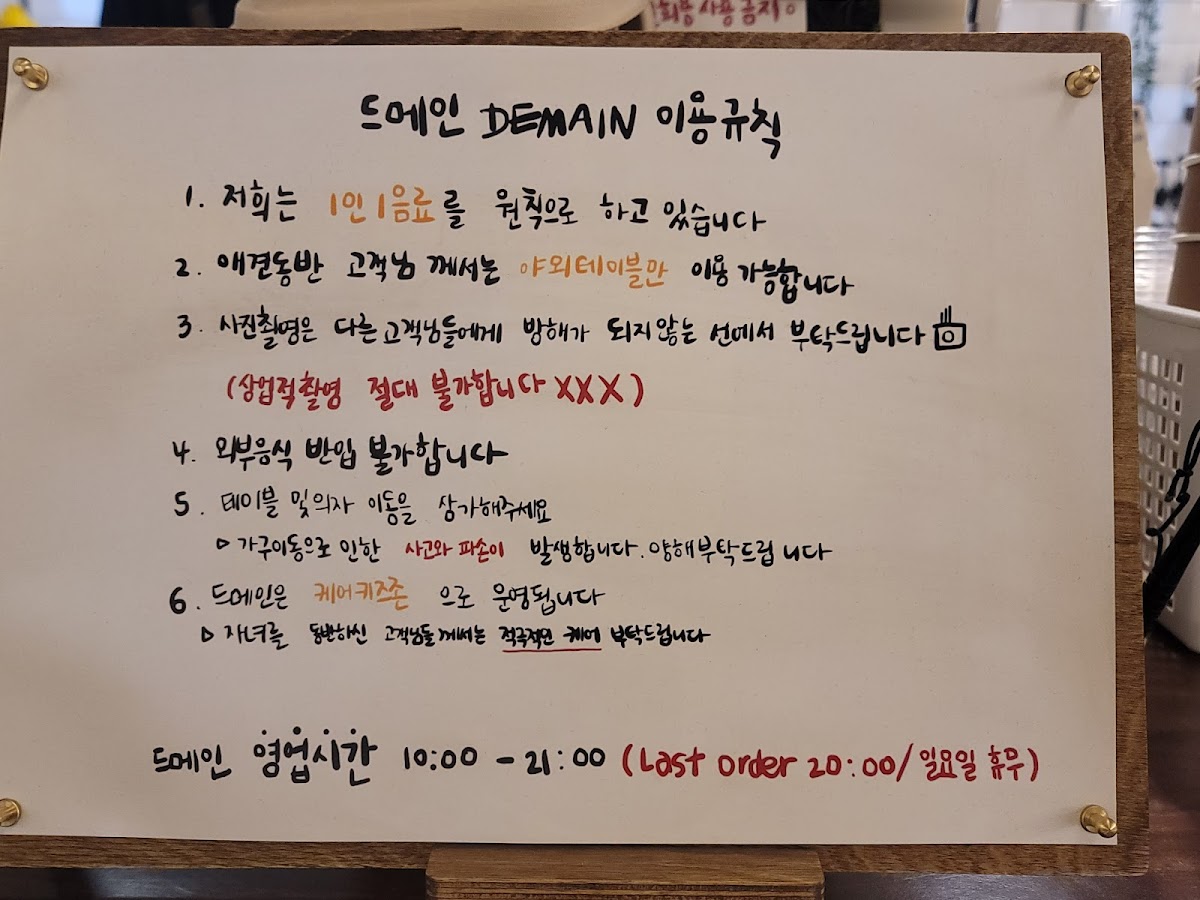 회용 사용 금지。
드메인 DEMAIN 이용규칙
1. 저희는 1인 1음료를 원칙으로 하고 있습니다
2. 애견동반 고객님 께서는 야외테이블만 이용 가능합니다
3. 사진촬영은 다른 고객님들에게 방해가 되지않는 선에서 부탁드립니다
(상업적촬영 절대 불가합니다 XXX)
4. 외부음식 반입 불가합니다
5. 테이블 및의자 이동을 삼가해주세요
▷ 가구이동으로 인한 사고와 파손이 발생합니다. 양해부탁드립니다
6. 드메인은 케어키즈존 으로 운영됩니다
▷ 자녀를 동반하신 고객님들께서는 적극적인 케어 부탁드립니다
드메인 영업시간 10:00 - 21:00 (Last order 20:00/ 일요일 휴무)